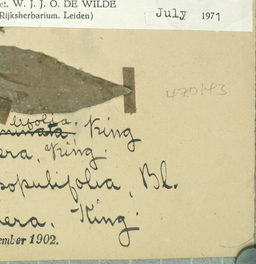 ct. W. J. J. O. DE WILDE
Rijksherbarium, Leiden) July 1971
420143
lifolia. King
minata King
era, King.
populifolia, Bl.
era. King.
ember 1902.